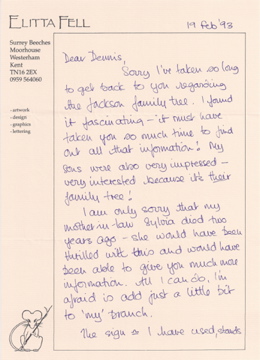 ELITTA FELL
19 Feb '93
Surrey Beeches
Moorhouse
Westerham
Kent
TN16 2EX
0959 564060
- artwork
- design
- graphics
- lettering
Dear Dennis,
Sorry I've taken so long
to get back to you regarding
the Jackson family tree. I found
it fascinating - it must have
taken you so much time to find
out all that information! My
sons were also very impressed -
very interested because it's their
family tree!
I am only sorry that my
mother-in-law Sylvia died two
years ago - she would have been
thrilled with this and would have
been able to give you much more
information. All I can do, I'm
afraid is add just a little bit
to 'my' branch.
The sign I have used, stands